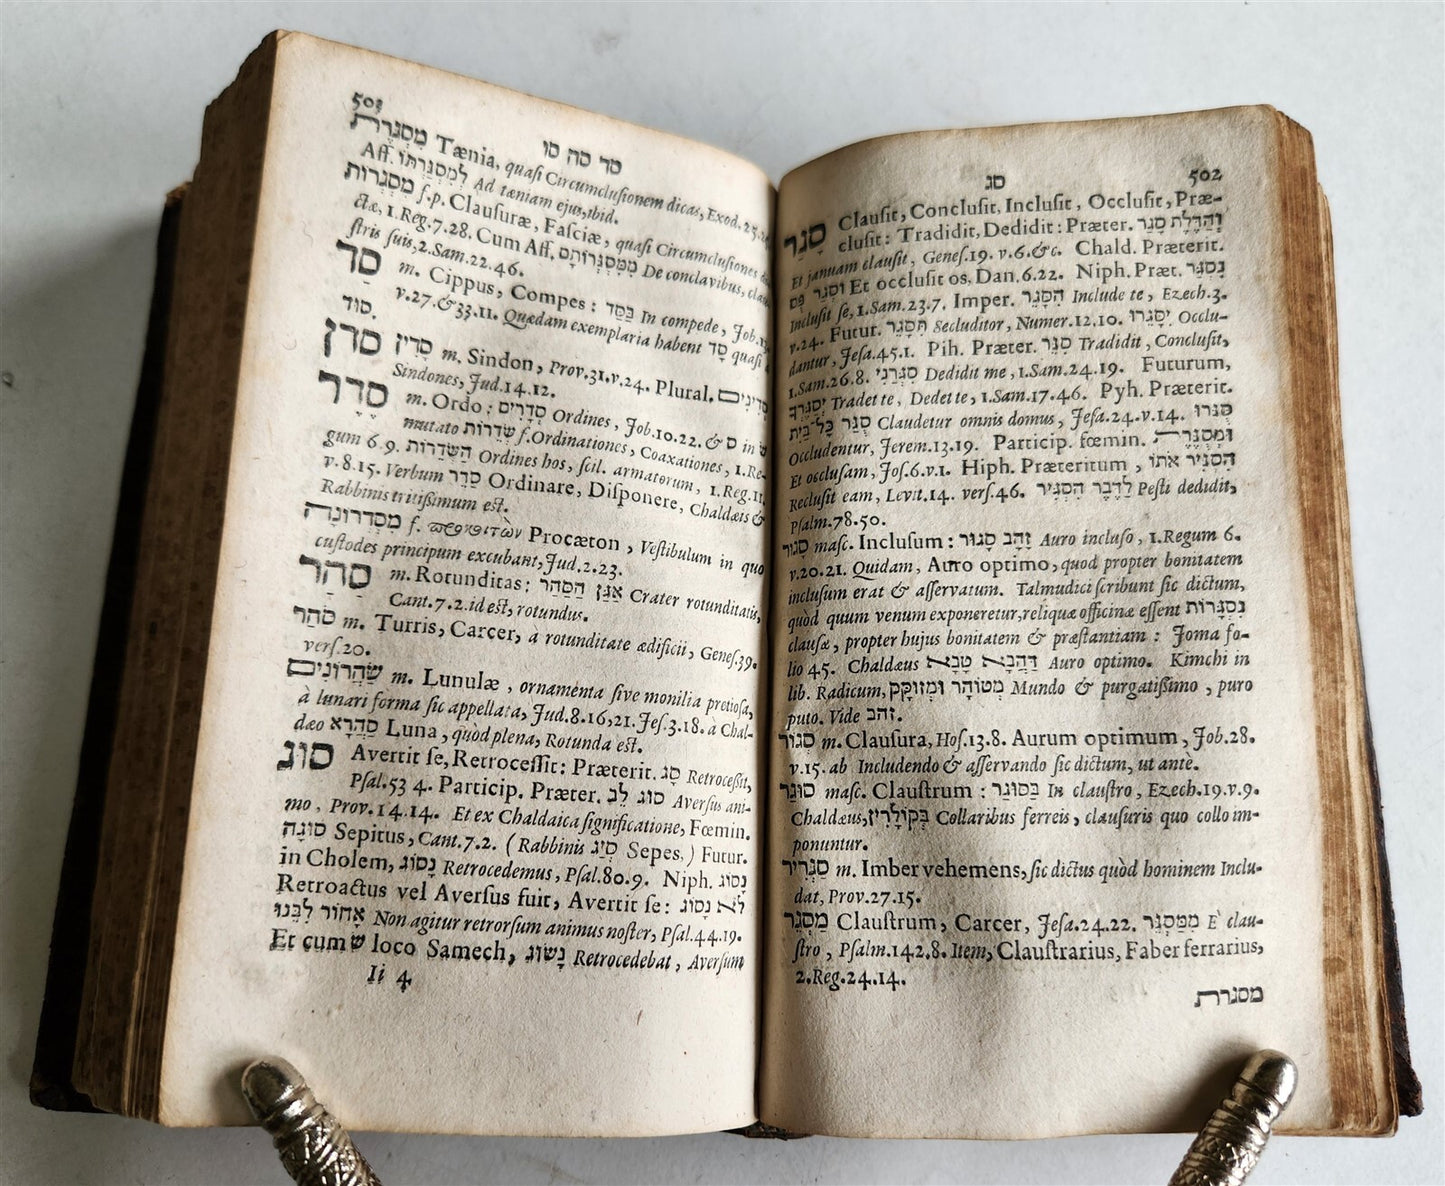 סג 502
סָגַר Clausit, Conclusit, Inclusit, Occlusit, Præ-
clusit: Tradidit, Dedidit: Præter. וְהַדֶּלֶת סָגַר
Et januam clausit, Genes.19. v.6.&c. Chald. Præterit.
וּסֲגַר פֻּם Et occlusit os, Dan.6.22. Niph. Præt. נִסְגַּר
Inclusit se, 1.Sam.23.7. Imper. הִסָּגֵר Include te, Ezech.3.
v.24. Futur. תִּסָּגֵר Secluditor, Numer.12.10. יִסָּגֵרוּ Occlu-
dantur, Jesa.45.1. Pih. Præter. סִגַּר Tradidit, Conclusit,
1.Sam.26.8. סִגְּרַנִי Dedidit me, 1.Sam.24.19. Futurum,
יְסַגֶּרְךָ Tradet te, Dedet te, 1.Sam.17.46. Pyh. Præterit.
סֻגַּר כָּל־בַּיִת Claudetur omnis domus, Jesa.24.v.14. סֻגְּרוּ
Occludentur, Jerem.13.19. Particip. fœmin. וּמְסֻגֶּרֶת
Et occlusam, Jos.6.v.1. Hiph. Præteritum, הִסְגִּיר אֹתוֹ
Reclusit eam, Levit.14. vers.46. לַדֶּבֶר הִסְגִּיר Pesti dedidit,
Psalm.78.50.
סָגוּר masc. Inclusum: זָהָב סָגוּר Auro incluso, 1.Regum 6.
v.20.21. Quidam, Auro optimo, quod propter bonitatem
inclusum erat & asservatum. Talmudici scribunt sic dictum,
quòd quum venum exponeretur, reliquæ officinæ essent נִסְגָּרוֹת
clausæ, propter hujus bonitatem & præstantiam: Joma fo-
lio 45. Chaldæus דַּהֲבָא טָבָא Auro optimo. Kimchi in
lib. Radicum, מְטוֹהָר וּמְזוּקָק Mundo & purgatissimo, puro
puto. Vide זהב.
סְגוֹר m. Clausura, Hos.13.8. Aurum optimum, Job.28.
v.15. ab Includendo & asservando sic dictum, ut antè.
סוּגַר masc. Claustrum: בַּסּוּגַר In claustro, Ezech.19.v.9.
Chaldæus, בְּקוֹלָרִין Collaribus ferreis, clausuris quo collo im-
ponuntur.
סַגְרִיר m. Imber vehemens, sic dictus quòd hominem Inclu-
dat, Prov.27.15.
מַסְגֵּר Claustrum, Carcer, Jesa.24.22. מִמַּסְגֵּר E clau-
stro, Psalm.142.8. Item, Claustrarius, Faber ferrarius,
2.Reg.24.14.
מסגרת
503 סד סה סו
מִסְגֶּרֶת Tænia, quasi Circumclusionem dicas, Exod.25.25.
Aff. לְמִסְגַּרְתּוֹ Ad tæniam ejus, ibid.
מִסְגְּרוֹת f.p. Clausuræ, Fasciæ, quasi Circumclusiones di-
ctæ, 1.Reg.7.28. Cum Aff. מִמִּסְגְּרוֹתָם De conclavibus, clau-
stris suis, 2.Sam.22.46.
סַד m. Cippus, Compes: בַּסַּד In compede, Job.13.
v.27.&33.11. Quædam exemplaria habent סָד quasi à
סוּד.
סדן סָדִין m. Sindon, Prov.31.v.24. Plural. סְדִינִים
Sindones, Jud.14.12.
סֵדֶר m. Ordo: סְדָרִים Ordines, Job.10.22. & ס in ש
mutato שְׂדֵרוֹת f. Ordinationes, Coaxationes, 1.Re-
gum 6.9. הַשְּׂדֵרוֹת Ordines hos, scil. armatorum, 1.Reg.11.
v.8.15. Verbum סָדַר Ordinare, Disponere, Chaldæis &
Rabbinis tritissimum est.
מִסְדְּרוֹנָה f. Procæton, Vestibulum in quo
custodes principum excubant, Jud.2.23.
סַהַר m. Rotunditas: אַגַּן הַסַּהַר Crater rotunditatis,
Cant.7.2. id est, rotundus.
סֹהַר m. Turris, Carcer, a rotunditate ædificii, Genes.39.
vers.20.
שַׂהֲרוֹנִים m. Lunulæ, ornamenta sive monilia pretiosa,
à lunari forma sic appellata, Jud.8.16,21. Jes.3.18. à Chal-
dæo סַהֲרָא Luna, quòd plena, Rotunda est.
סוּג Avertit se, Retrocessit: Præterit. סָג Retrocessit,
Psal.53 4. Particip. Præter. סוּג לֵב Aversus ani-
mo, Prov.14.14. Et ex Chaldaica significatione, Fœmin.
סוּגָה Sepitus, Cant.7.2. (Rabbinis סְיָג Sepes.) Futur.
in Cholem, נָסוֹג Retrocedemus, Psal.80.9. Niph. נָסוֹג
Retroactus vel Aversus fuit, Avertit se: לֹא נָסוֹג
אָחוֹר לִבֵּנוּ Non agitur retrorsum animus noster, Psal.44.19.
Et cum שׂ loco Samech, נָשׂוֹג Retrocedebat, Aversum
Ii 4